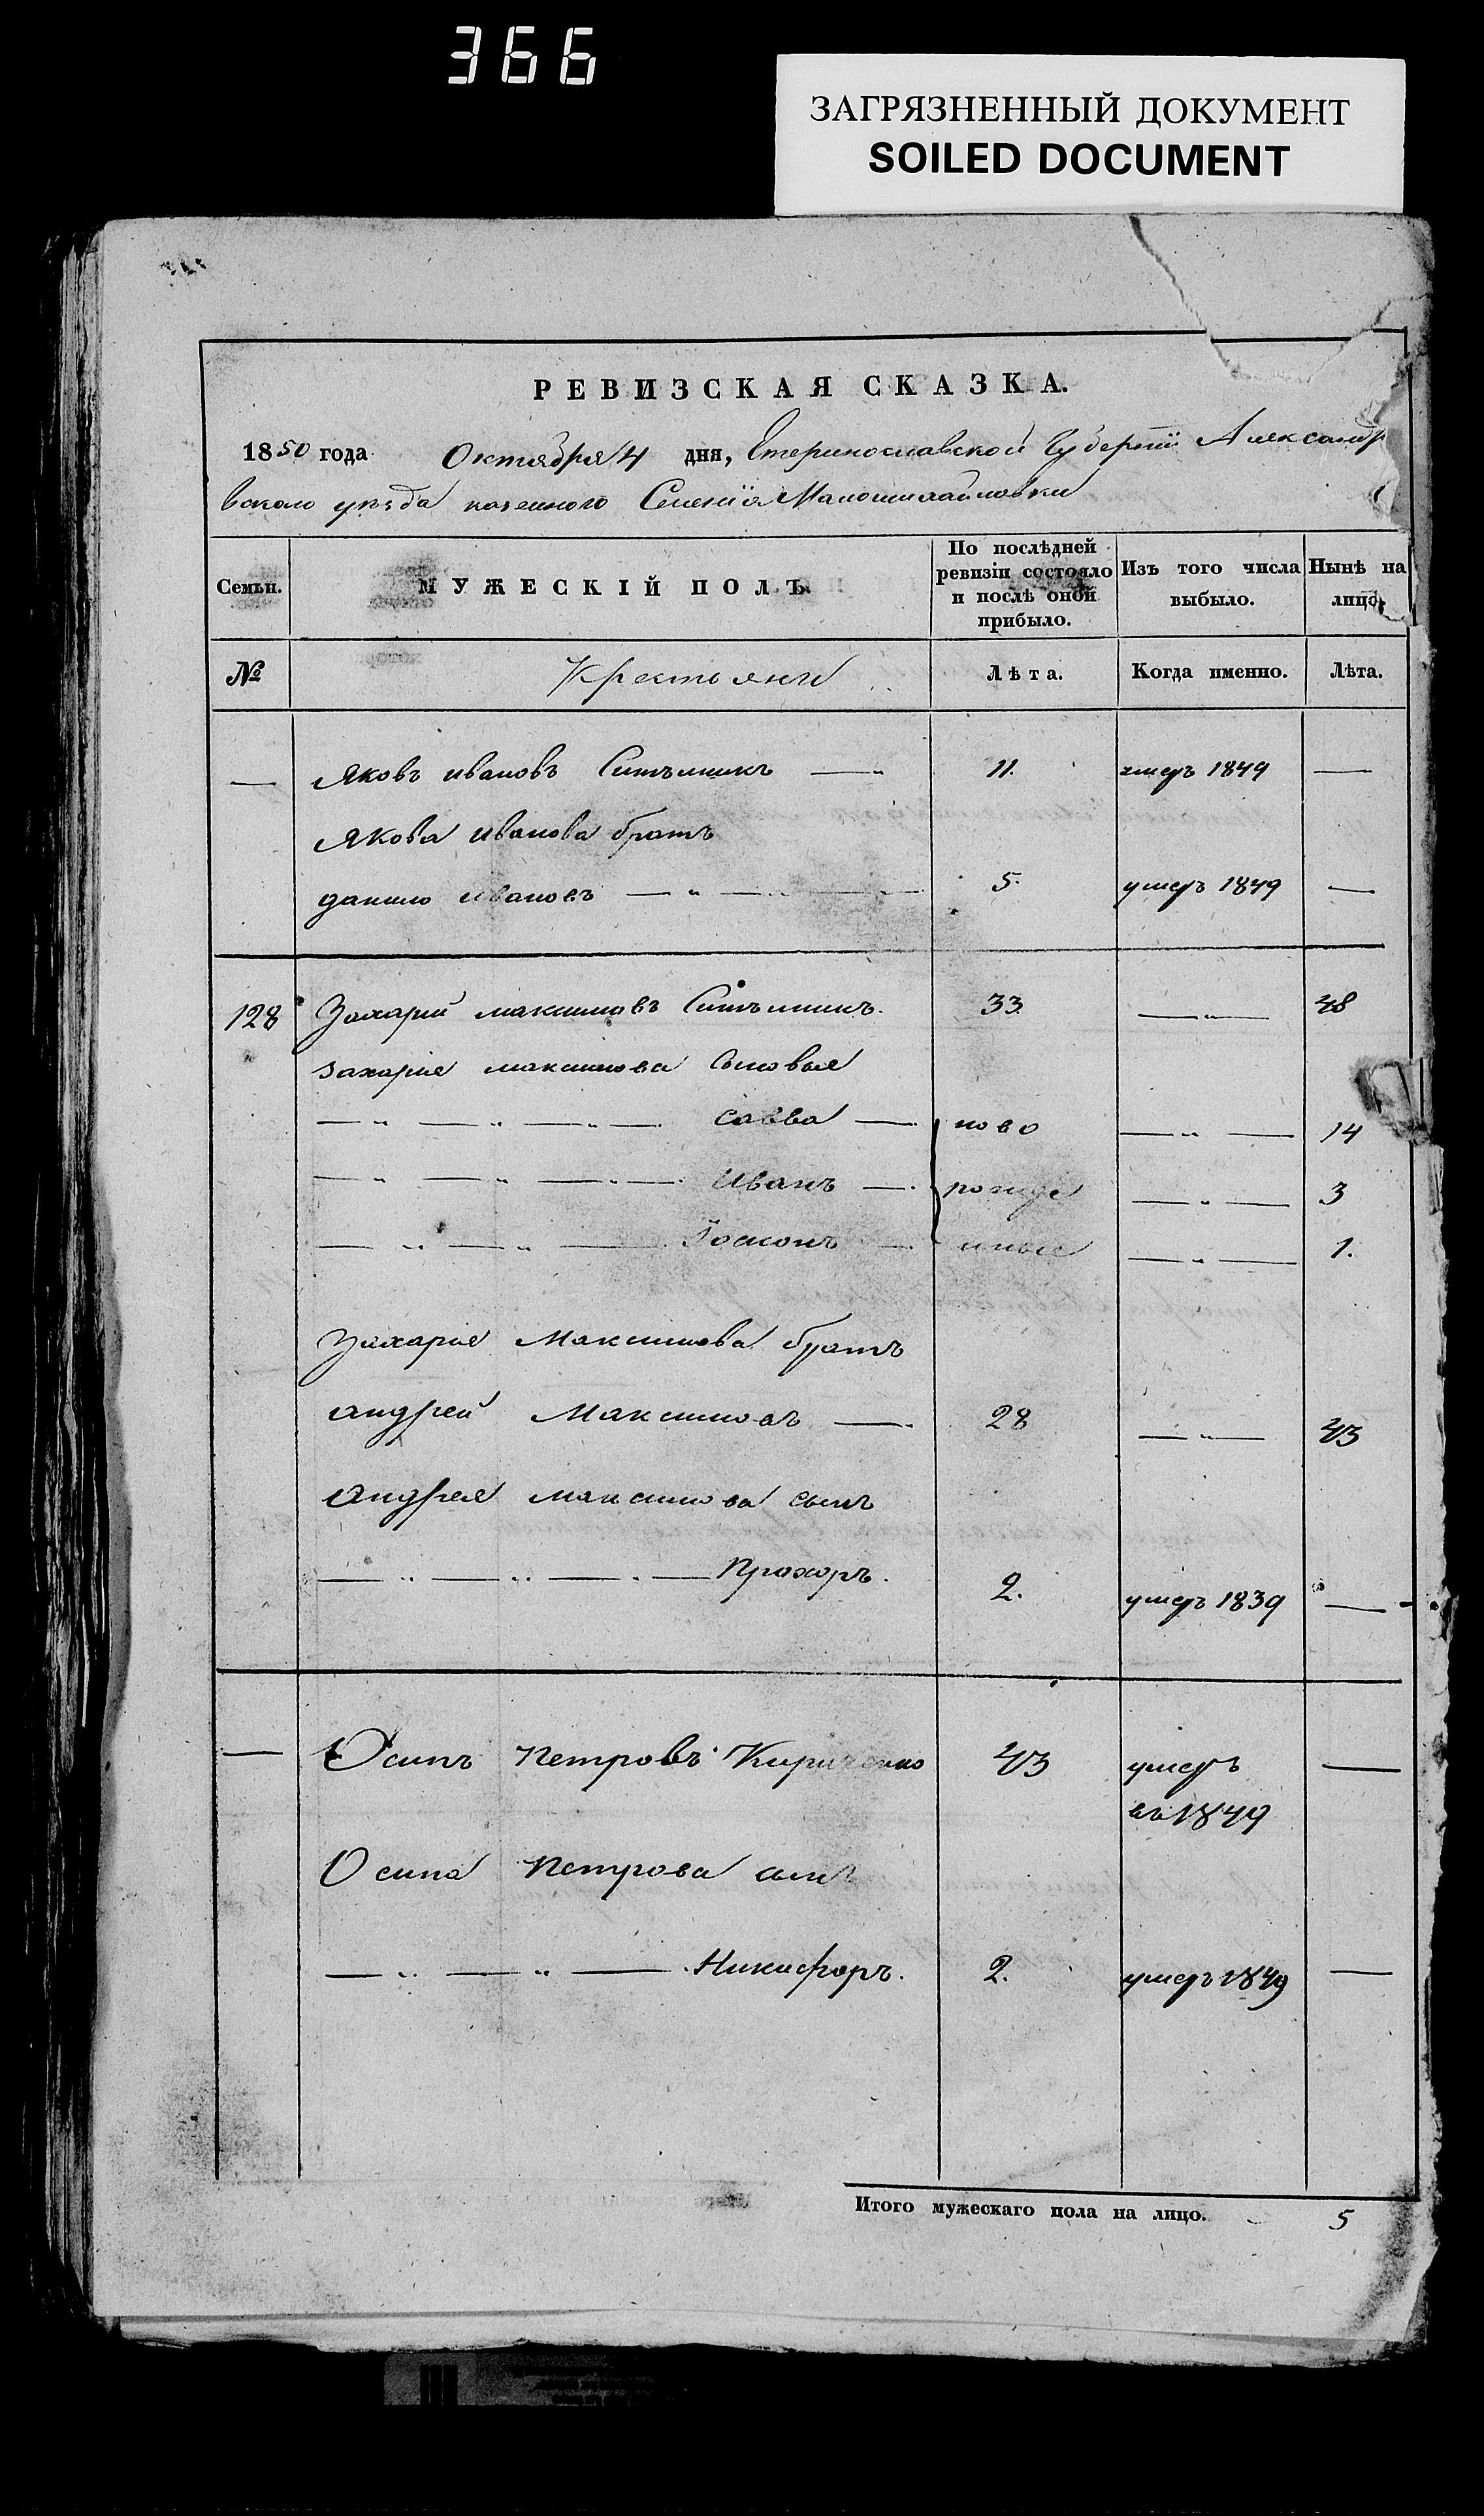 366
ЗАГРЯЗНЕННЫЙ ДОКУМЕНТ
SOILED DOCUMENT
РЕВИЗСКАЯ СКАЗКА.
1850 года Октября 4 дня, Етеринославской Губернїи Александр
вскаго уѣзда казенного Селенїя Маломихайловки
Семьи. МУЖЕСКІЙ ПОЛЪ. По послѣдней ревизіи состояло и послѣ оной прибыло. Изъ того числа выбыло. Нынѣ на лицо.
№ Крестьяни Лѣта. Когда именно. Лѣта.
— Яковъ ивановъ Ситьникъ — 11. умеръ 1849 —
Якова иванова братъ
данило ивановъ — " — 5. умеръ 1849 —
128 Захарий максимовъ Ситьникъ. 33. — " — 48
захария максимова сыновья
— " — " — " — савва — ново — " — 14
— " — " — " — иванъ — рожде — " — 3
— " — " — — нные — " — 1.
Захария Максимова братъ
андрей Максимовъ — 28 — " — 43
Андрея максимова сынъ
— " — " — " — Прохоръ. 2. умеръ 1839 —
— Осипъ Петровъ Кириченко 43 умеръ —
въ 1849
Осипа Петрова сынъ
— " — " — Никифоръ. 2. умеръ 1849 —
Итого мужескаго пола на лицо. 5